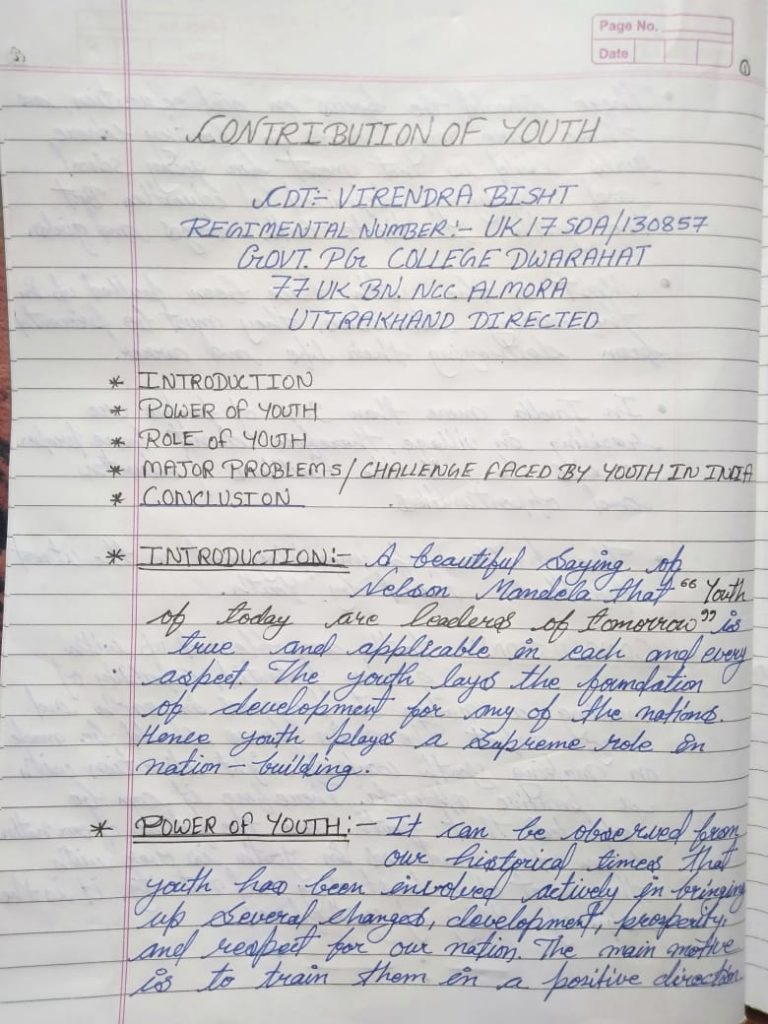 Page No.
Date
1
CONTRIBUTION OF YOUTH
CDT:- VIRENDRA BISHT
REGIMENTAL NUMBER:- UK17SDA/130857
GOVT. PG COLLEGE DWARAHAT
77 UK BN. NCC ALMORA
UTTRAKHAND DIRECTED
* INTRODUCTION
* POWER OF YOUTH
* ROLE OF YOUTH
* MAJOR PROBLEMS/CHALLENGE FACED BY YOUTH IN INDIA
* CONCLUSION
* INTRODUCTION:- A beautiful saying of
Nelson Mandela that "Youth
of today are leaders of tomorrow" is
true and applicable in each and every
aspect. The youth lays the foundation
of development for any of the nations.
Hence youth plays a supreme role in
nation-building.
* POWER OF YOUTH:- It can be observed from
our historical times that
youth has been involved actively in bringing
up several changes, development, prosperity,
and respect for our nation. The main motive
is to train them in a positive direction